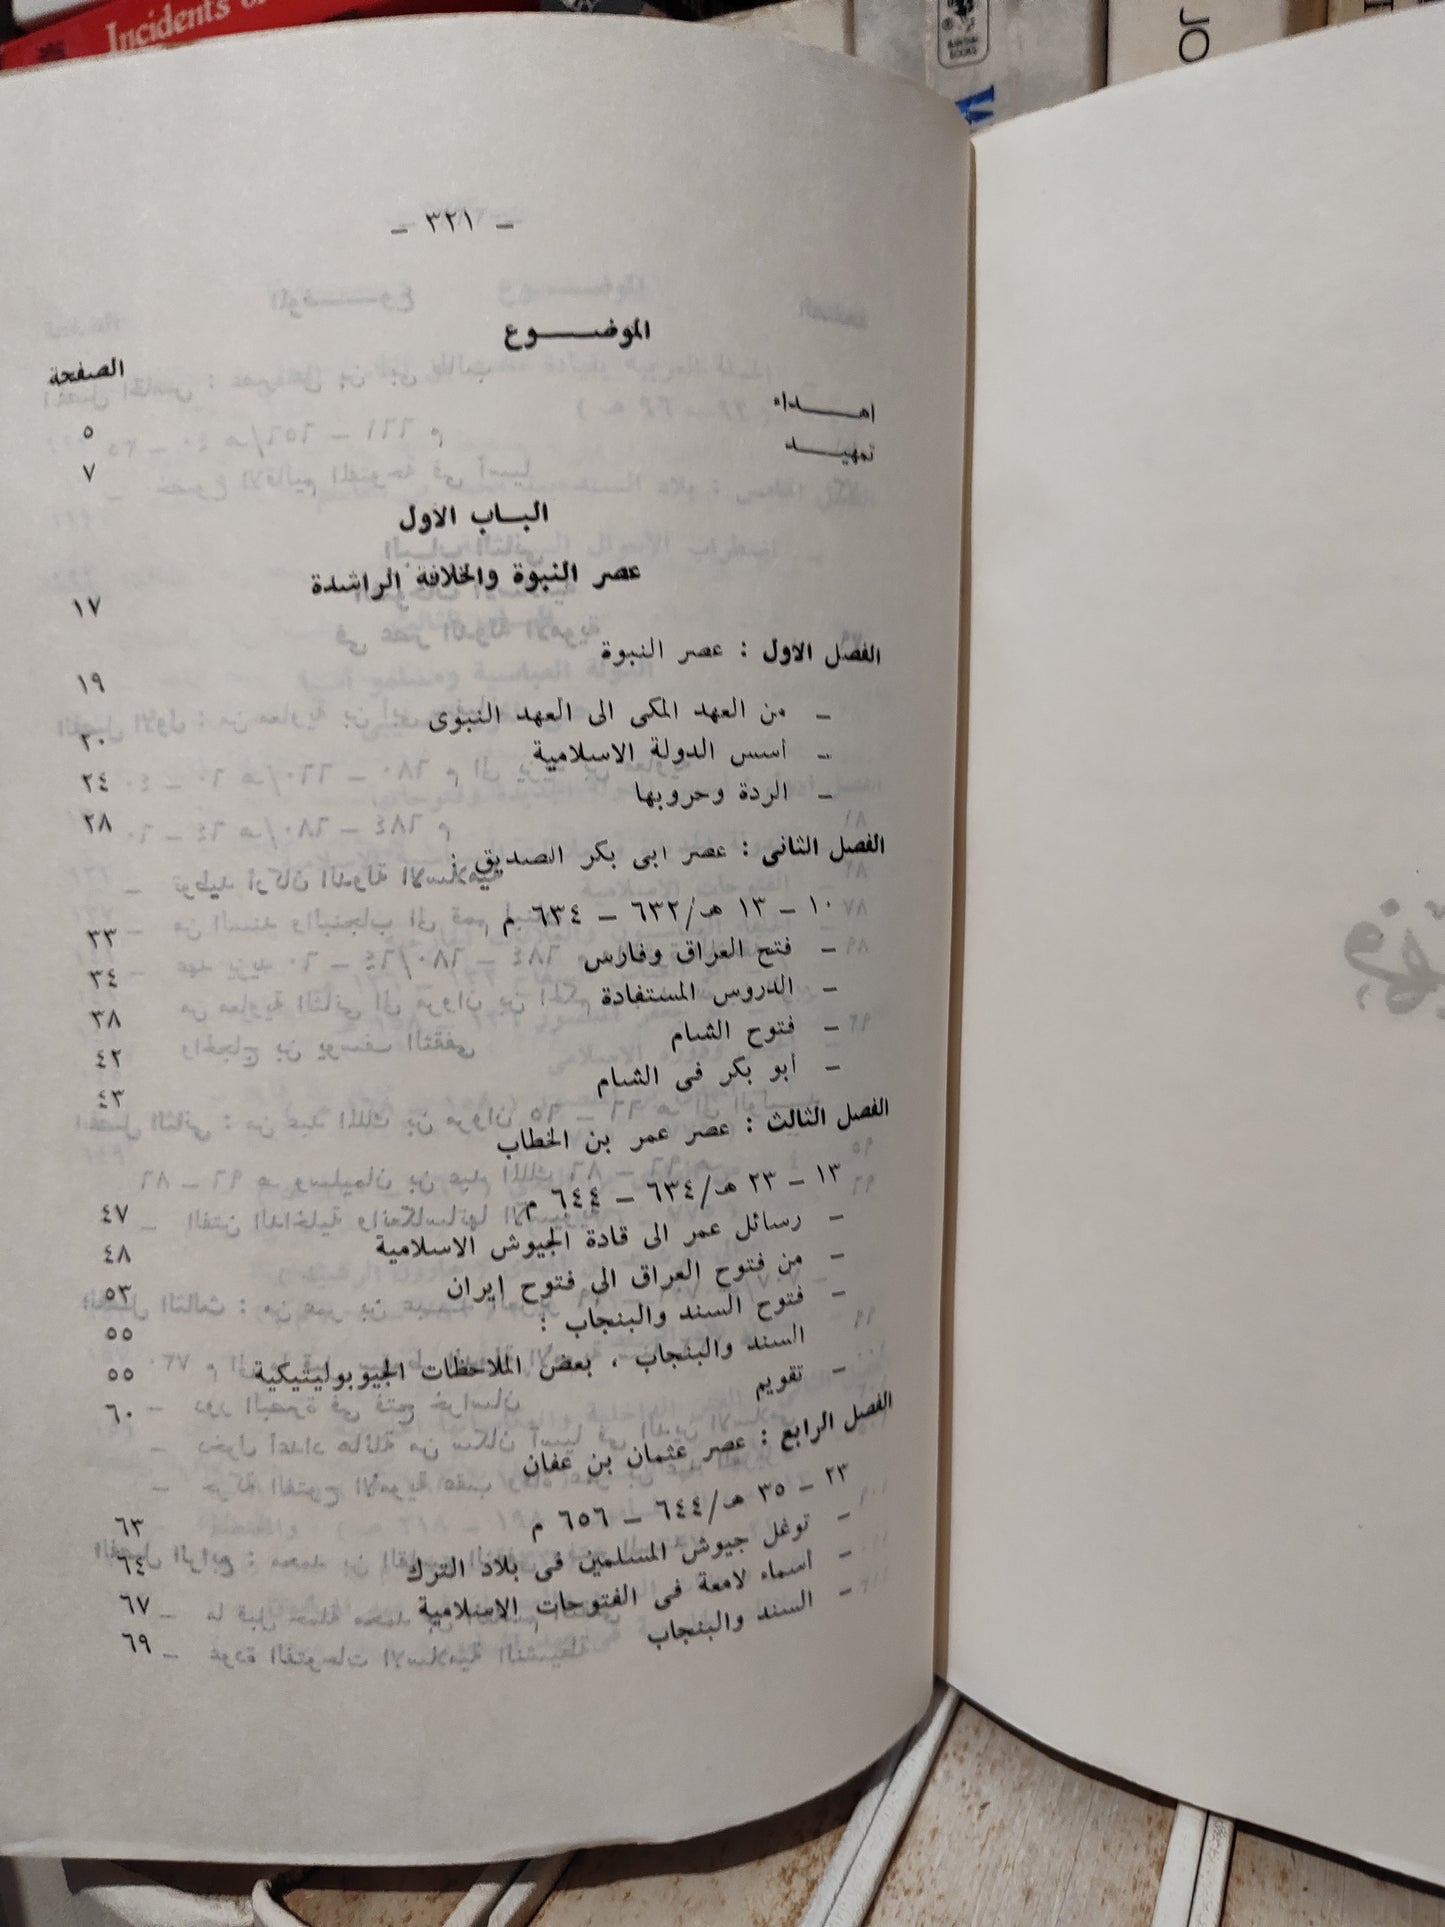 Incidents of
BANTAM BOOKS
JO
– ٣٢١ –
الموضـــــوع
الصفحة
اهـــــداء
٥
تمهيـــد
٧
البـاب الأول
عصر النبوة والخلافة الراشدة
١٧
الفصل الأول : عصر النبوة
١٩
– من العهد المكى الى العهد النبوى
٢٠
– أسس الدولة الاسلامية
٢٤
– الردة وحروبها
٢٨
الفصل الثانى : عصر ابى بكر الصديق :
١٠ – ١٣ هـ/٦٣٢ – ٦٣٤ م
٣٣
– فتح العراق وفارس
٣٤
– الدروس المستفادة
٣٨
– فتوح الشام
٤٢
– أبو بكر فى الشام
٤٣
الفصل الثالث : عصر عمر بن الخطاب
١٣ – ٢٣ هـ/٦٣٤ – ٦٤٤ م
٧٤
– رسائل عمر الى قادة الجيوش الاسلامية
٤٨
– من فتوح العراق الى فتوح إيران
٥٣
– فتوح السند والبنجاب :
٥٥
السند والبنجاب ، بعض الملاحظات الجيوبوليتيكية
٥٥
– تقويم
٦٠
الفصل الرابع : عصر عثمان بن عفان
٢٣ – ٣٥ هـ/٦٤٤ – ٦٥٦ م
٦٣
– توغل جيوش المسلمين فى بلاد الترك
٦٤
– أسماء لامعة فى الفتوحات الاسلامية
٦٧
– السند والبنجاب
٦٩